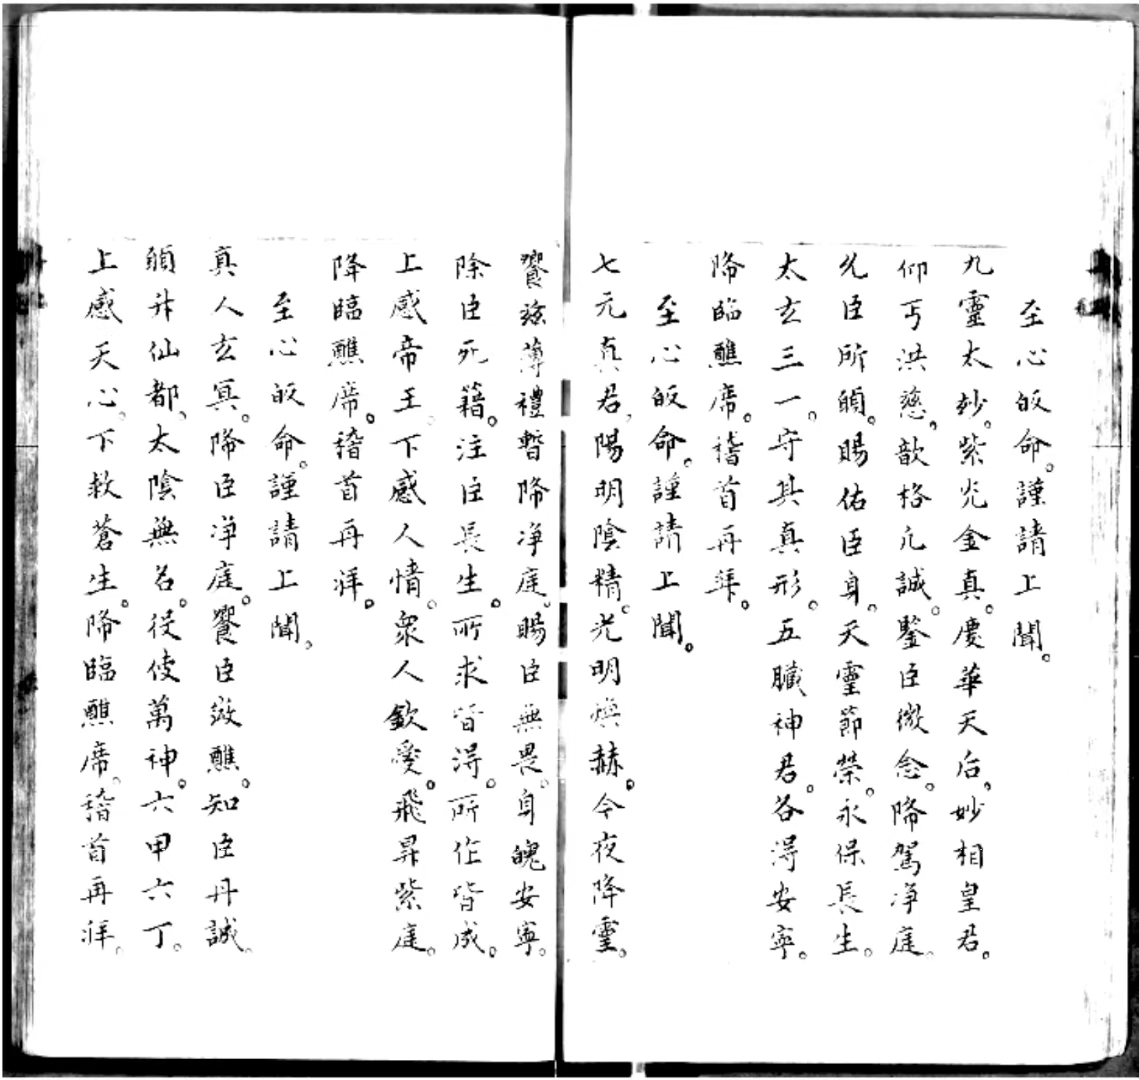 至心皈命。謹請上聞。
九靈太妙。紫炁金真。慶華天后。妙相皇君。
仰丐洪慈。歆格凢誠。鑒臣微念。降駕净庭。
允臣所願。賜佑臣身。天靈節榮。永保長生。
太玄三一。守其真形。五臟神君。各淂安寧。
降臨醮席。稽首再拜。
至心皈命。謹請上聞。
七元真君。陽明陰精。光明煥赫。今夜降靈。
饗玆薄禮暫降净庭。賜臣無畏。身魄安寧。
除臣死籍。注臣長生。所求皆淂。所作皆成。
上感帝王。下感人情。衆人欽愛。飛昇紫庭。
降臨醮席。稽首再拜。
至心皈命。謹請上聞。
真人玄冥。降臣净庭。饗臣微醮。知臣丹誠。
願升仙都。太陰無名。役使萬神。六甲六丁。
上感天心。下救蒼生。降臨醮席。稽首再拜。